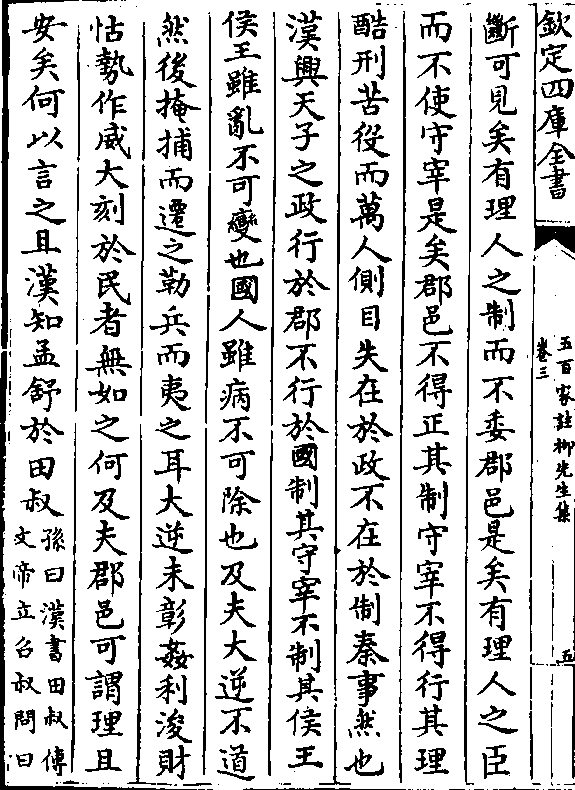 欽定四庫全書
五百家註柳先生集
卷三
五
斷可見矣有理人之制而不委郡邑是矣有理人之臣
而不使守宰是矣郡邑不得正其制守宰不得行其理
酷刑苦役而萬人側目失在於政不在於制秦事然也
漢興天子之政行於郡不行於國制其守宰不制其侯王
侯王雖亂不可變也國人雖病不可除也及夫大逆不道
然後掩捕而遷之勒兵而夷之耳大逆未彰姦利浚財
怙勢作威大刻於民者無如之何及夫郡邑可謂理且
安矣何以言之且漢知孟舒於田叔
孫曰漢書田叔傳
文帝立召叔問曰